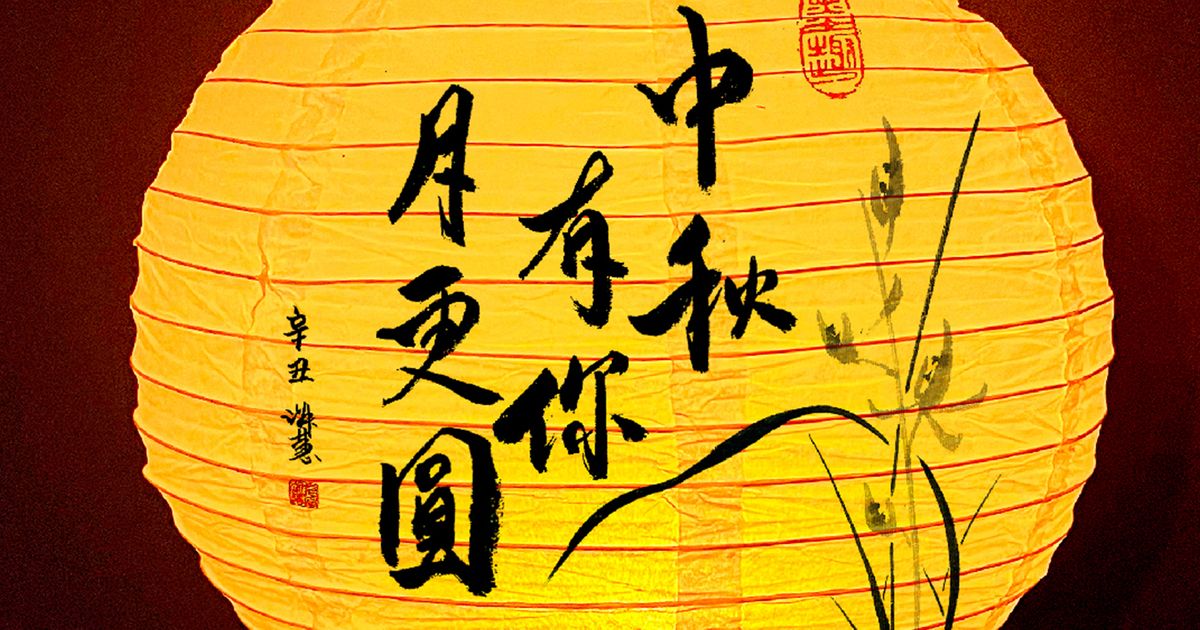 中秋
有你
月更圓
辛丑